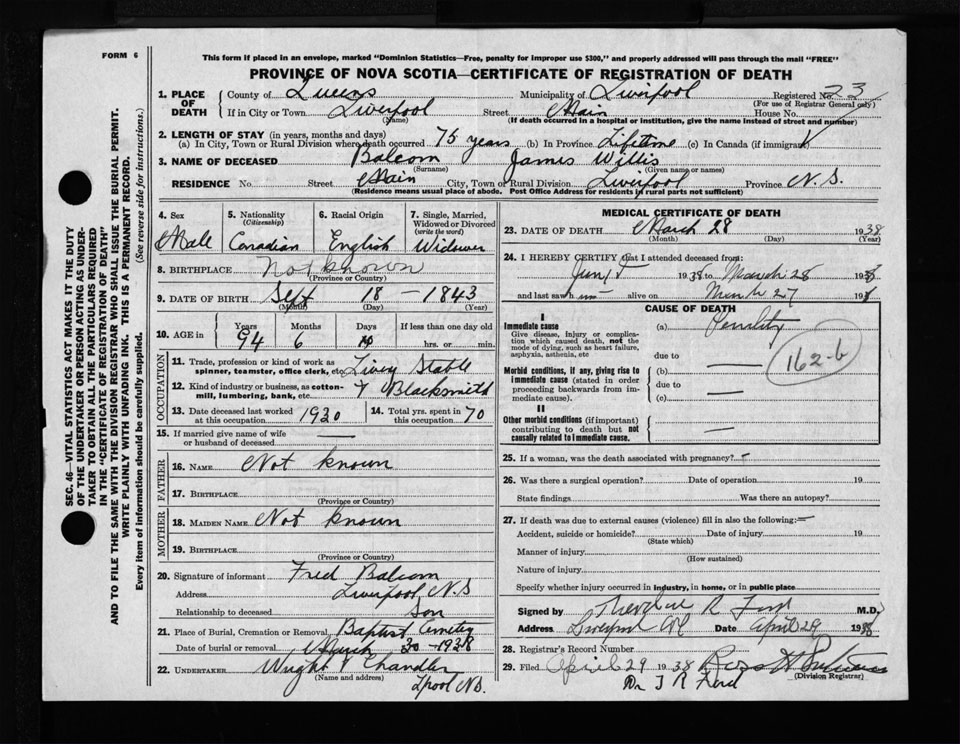 FORM 6
This form if placed in an envelope, marked "Dominion Statistics—Free, penalty for improper use $300," and properly addressed will pass through the mail "FREE"
PROVINCE OF NOVA SCOTIA—CERTIFICATE OF REGISTRATION OF DEATH
SEC. 46—VITAL STATISTICS ACT MAKES IT THE DUTY
OF THE UNDERTAKER OR PERSON ACTING AS UNDER-
TAKER TO OBTAIN ALL THE PARTICULARS REQUIRED
IN THE "CERTIFICATE OF REGISTRATION OF DEATH"
AND TO FILE THE SAME WITH THE DIVISION REGISTRAR WHO SHALL ISSUE THE BURIAL PERMIT.
WRITE PLAINLY WITH UNFADING INK. THIS IS A PERMANENT RECORD.
Every item of information should be carefully supplied. (See reverse side for instructions.)
1. PLACE OF DEATH
County of Queens Municipality of Liverpool Registered No. 23
(For use of Registrar General only)
If in City or Town Liverpool Street Main House No.
(Name) (If death occurred in a hospital or institution, give the name instead of street and number)
2. LENGTH OF STAY (in years, months and days)
(a) In City, Town or Rural Division where death occurred 75 years (b) In Province Lifetime (c) In Canada (if immigrant)
3. NAME OF DECEASED Balcom James Willis
(Surname) (Given name or names)
RESIDENCE No. Street Main City, Town or Rural Division Liverpool Province N.S.
(Residence means usual place of abode. Post Office Address for residents in rural parts not sufficient)
4. Sex 5. Nationality (Citizenship) 6. Racial Origin 7. Single, Married, Widowed or Divorced (write the word)
Male Canadian English Widower
8. BIRTHPLACE Not known
(Province or Country)
9. DATE OF BIRTH Sept 18 - 1843
(Month) (Day) (Year)
10. AGE in Years Months Days If less than one day old
94 6 10 hrs. or min.
OCCUPATION
11. Trade, profession or kind of work as spinner, teamster, office clerk, etc. Livery Stable
12. Kind of industry or business, as cotton-mill, lumbering, bank, etc. & Blacksmith
13. Date deceased last worked at this occupation 1920 14. Total yrs. spent in this occupation 70
15. If married give name of wife or husband of deceased —
FATHER
16. NAME Not known
17. BIRTHPLACE
(Province or Country)
MOTHER
18. MAIDEN NAME Not known
19. BIRTHPLACE
(Province or Country)
20. Signature of informant Fred Balcom
Address Liverpool, N.S
Relationship to deceased Son
21. Place of Burial, Cremation or Removal Baptist Cemetery
Date of burial or removal March 30 - 1938
22. UNDERTAKER Wright & Chandler
(Name and address)
Lpool N.S.
MEDICAL CERTIFICATE OF DEATH
23. DATE OF DEATH March 28 1938
(Month) (Day) (Year)
24. I HEREBY CERTIFY that I attended deceased from:
1938 to March 28 1938
and last saw him alive on March 27 193
CAUSE OF DEATH
I
Immediate cause (a) Senility
Give disease, injury or complication which caused death, not the mode of dying, such as heart failure, asphyxia, asthenia, etc
due to
162-b
Morbid conditions, if any, giving rise to immediate cause (stated in order proceeding backwards from immediate cause).
(b) —
due to
(c) —
II
Other morbid conditions (if important) contributing to death but not causally related to immediate cause. —
25. If a woman, was the death associated with pregnancy? -
26. Was there a surgical operation? Date of operation 19
State findings Was there an autopsy?
27. If death was due to external causes (violence) fill in also the following:—
Accident, suicide or homicide? Date of injury 19
(State which)
Manner of injury
(How sustained)
Nature of injury
Specify whether injury occurred in industry, in home, or in public place
Signed by Theodore R Ford M.D.
Address Liverpool Date April 29 1938
28. Registrar's Record Number
29. Filed April 29 1938
(Division Registrar)
Dr J R Ford